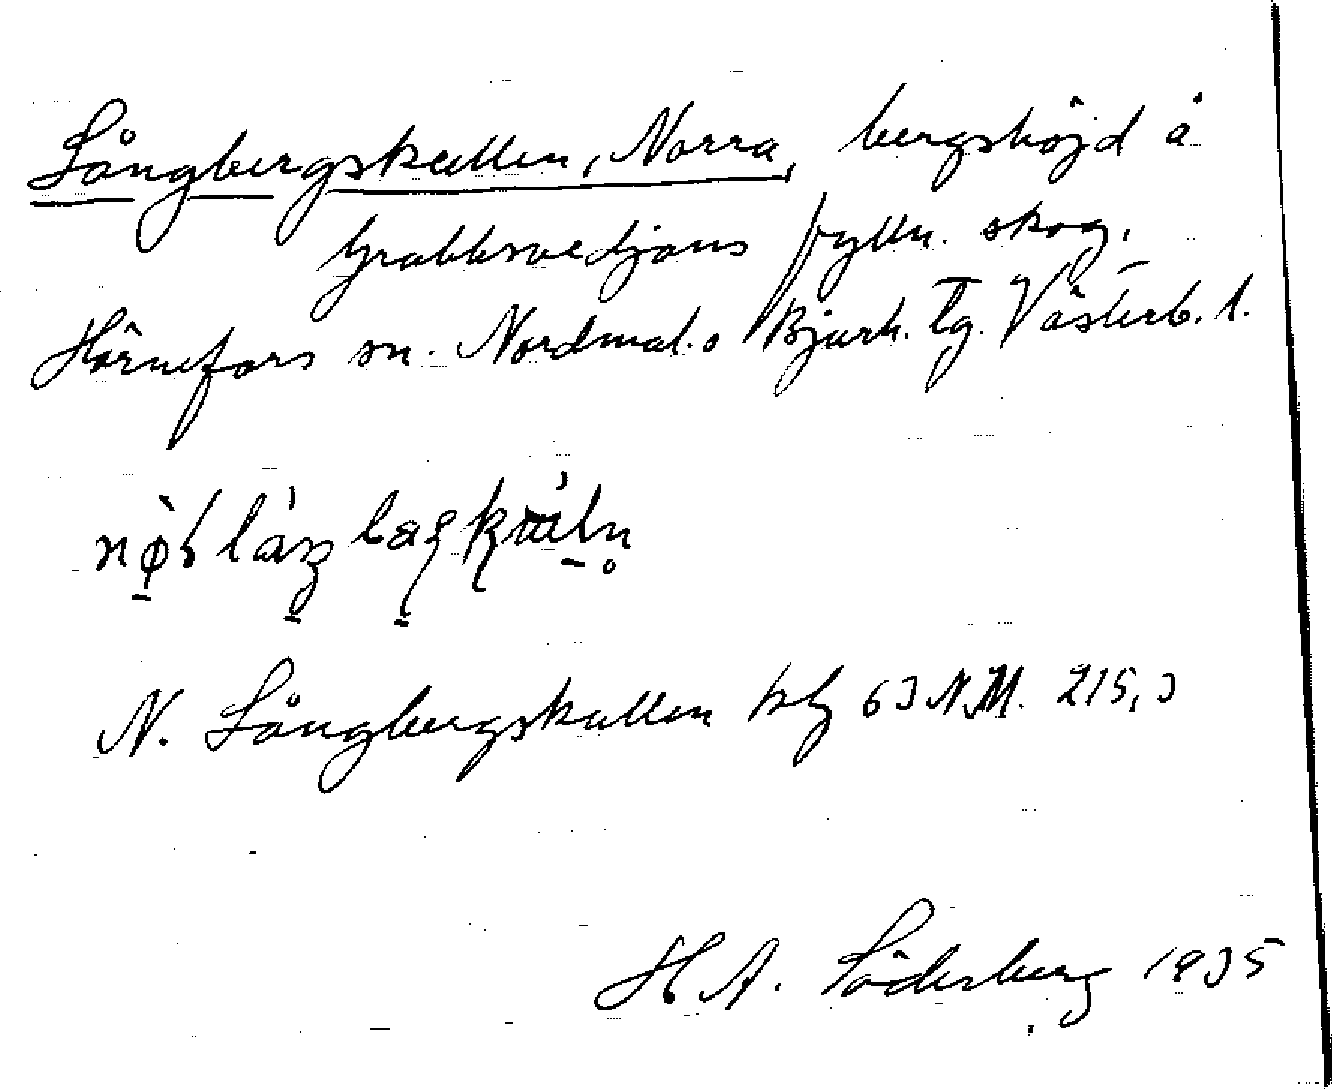 Långbergskullen, Norra, bergshöjd å
Grabbsvedjans fylln. skog,
Hörnefors sn. Nordmal. o Bjurh. tg. Västerb. l.
N. Långbergskullen kbl 63 N.M. 215,3
H A. Söderberg 1935